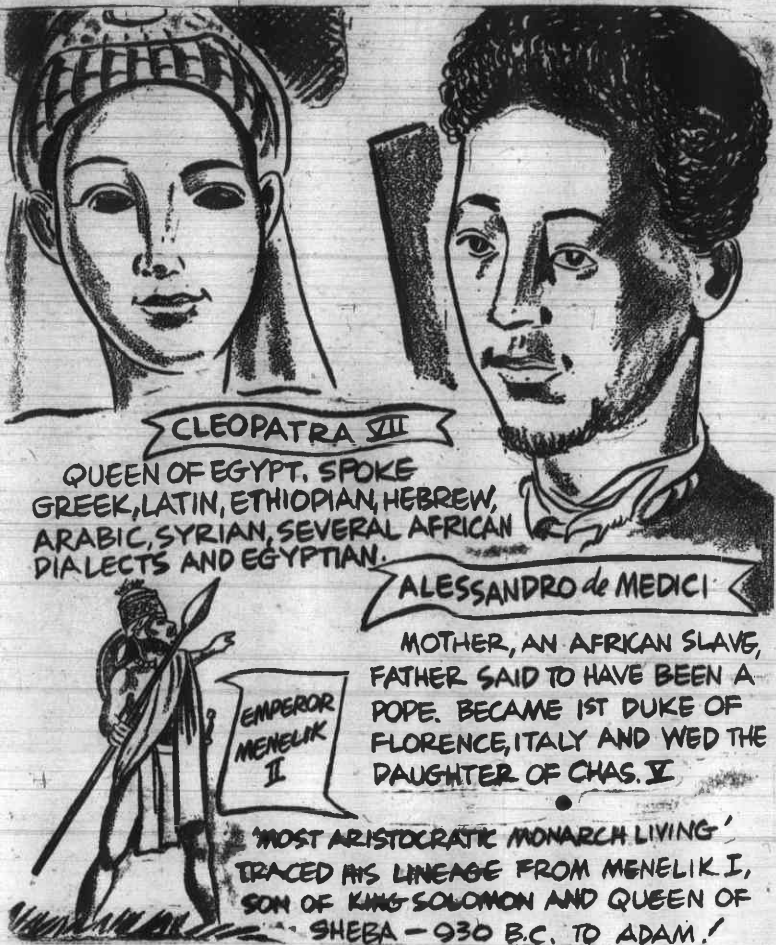 CLEOPATRA VII
QUEEN OF EGYPT. SPOKE
GREEK, LATIN, ETHIOPIAN, HEBREW,
ARABIC, SYRIAN, SEVERAL AFRICAN
DIALECTS AND EGYPTIAN.
ALESSANDRO de MEDICI
MOTHER, AN AFRICAN SLAVE,
FATHER SAID TO HAVE BEEN A
POPE. BECAME 1ST DUKE OF
FLORENCE, ITALY AND WED THE
DAUGHTER OF CHAS. V
EMPEROR
MENELIK
II
'MOST ARISTOCRATIC MONARCH LIVING'
TRACED HIS LINEAGE FROM MENELIK I,
SON OF KING SOLOMON AND QUEEN OF
SHEBA - 930 B.C. TO ADAM!